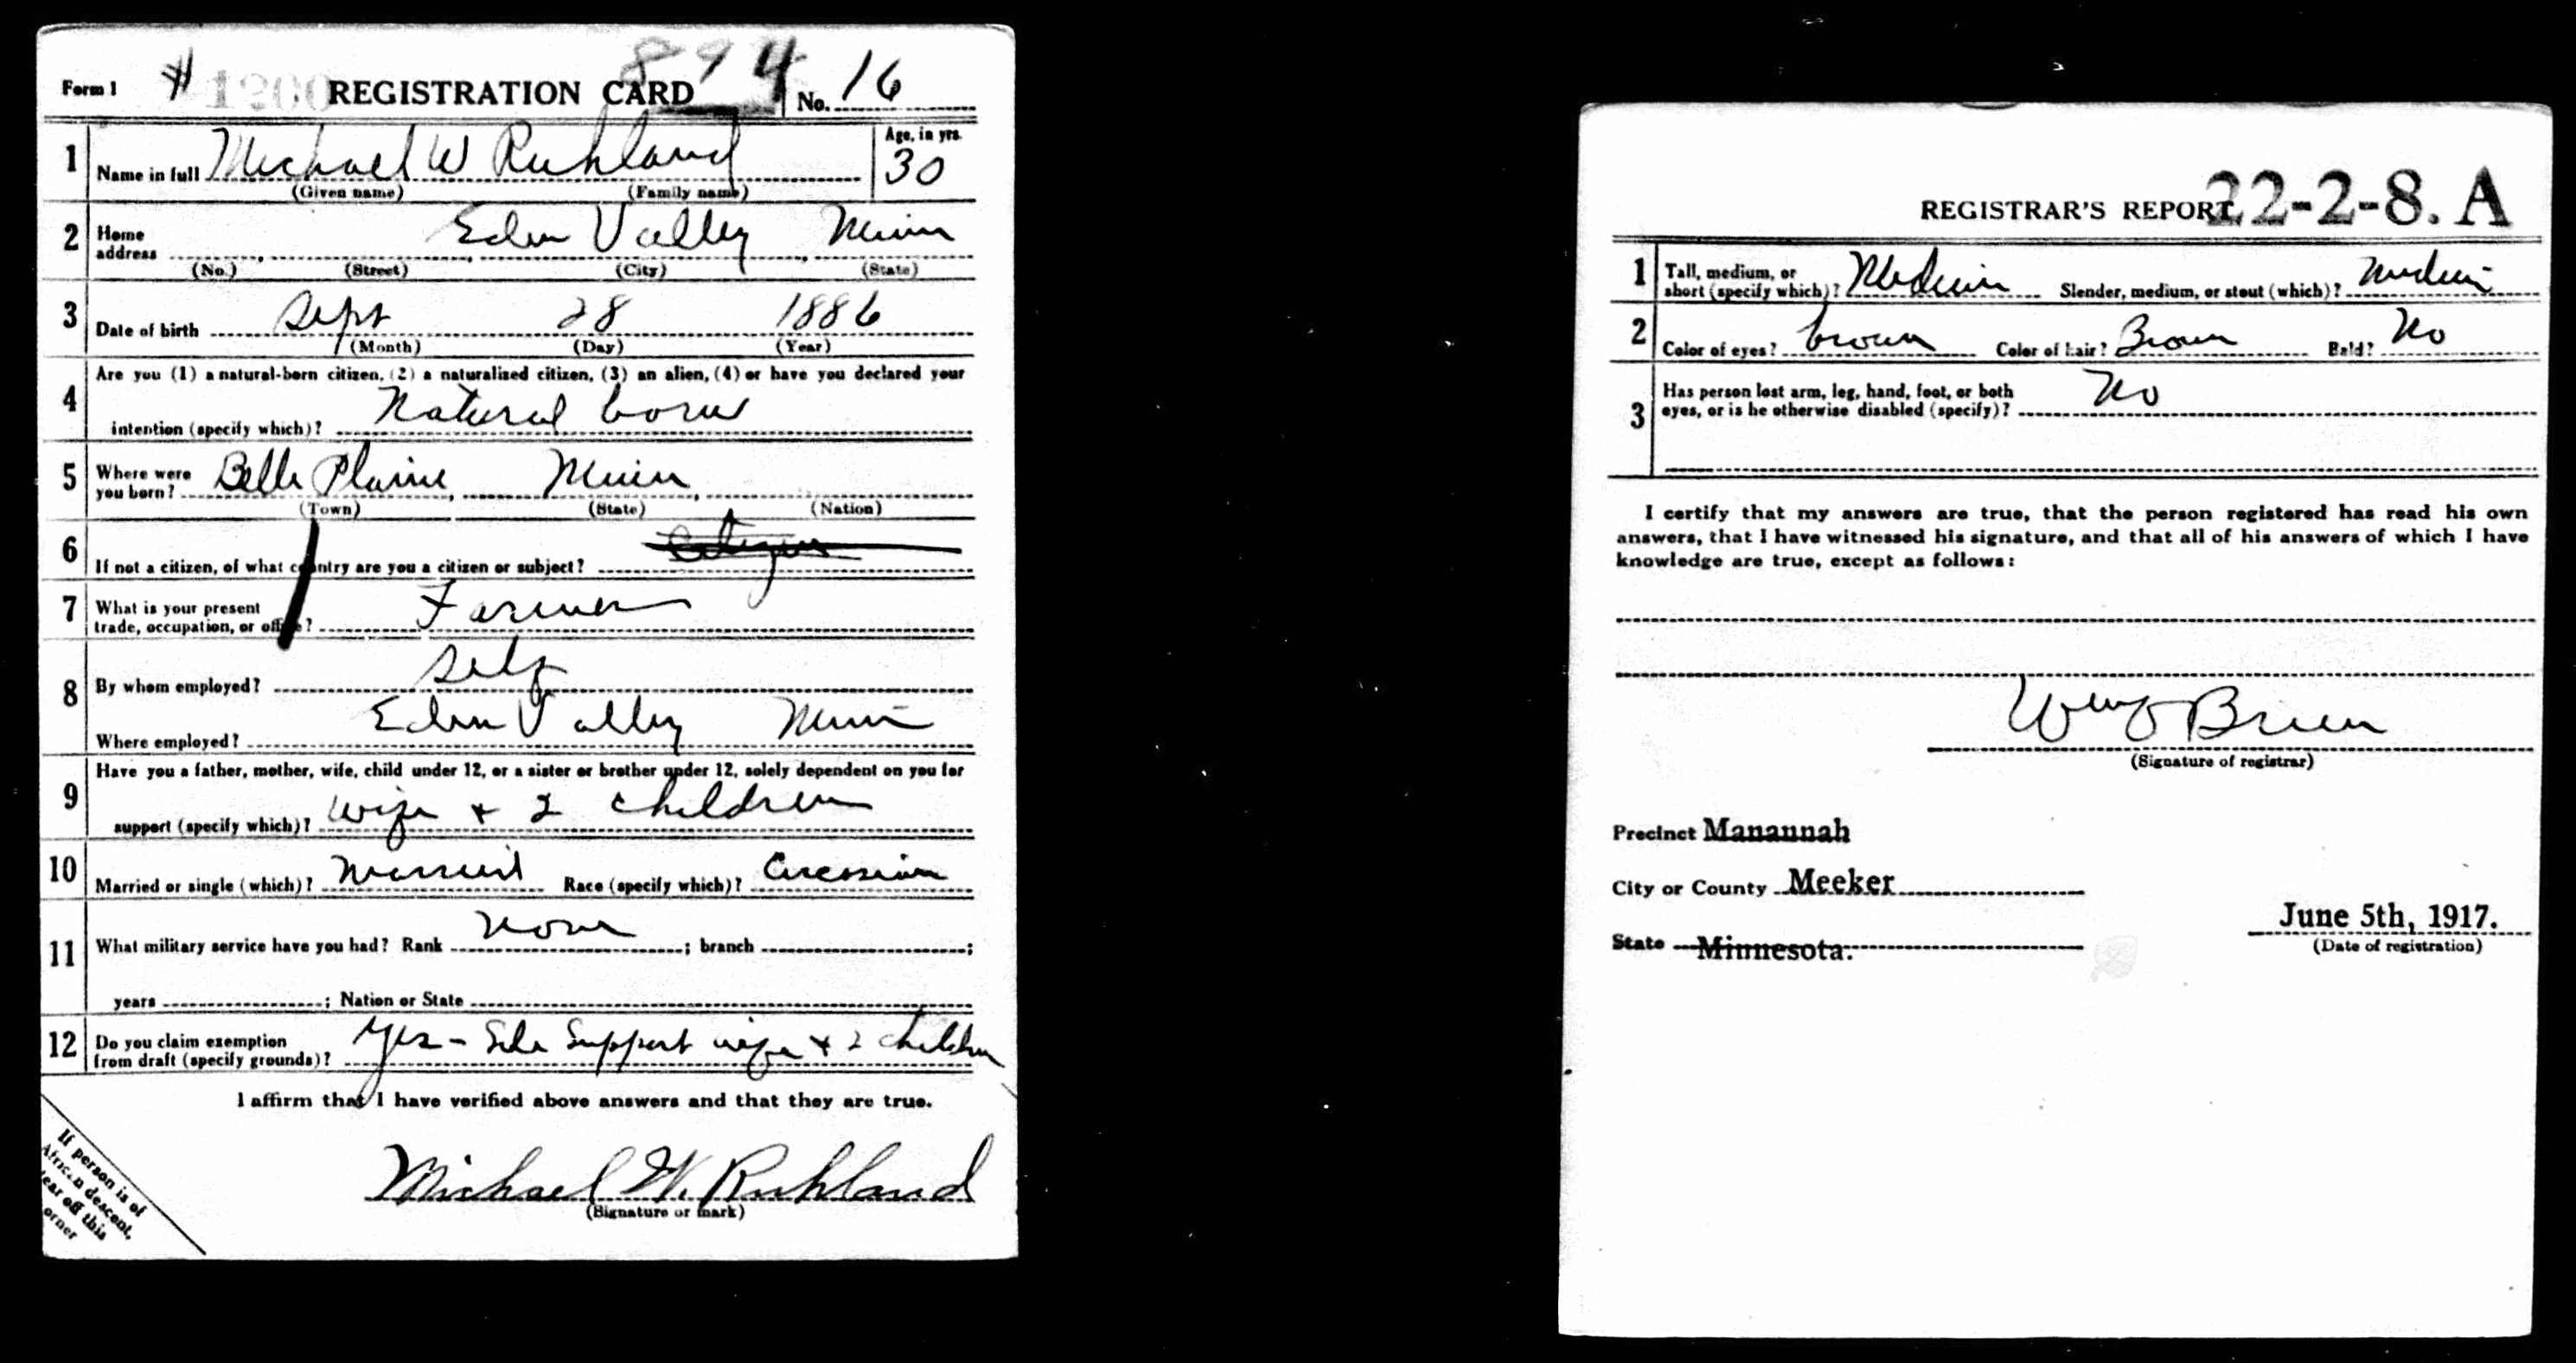 Form 1 # 1200 REGISTRATION CARD 894 No. 16
1 Name in full Michael W Ruhland Age, in yrs. 30
(Given name) (Family name)
2 Home address Eden Valley Minn
(No.) (Street) (City) (State)
3 Date of birth Sept 28 1886
(Month) (Day) (Year)
4 Are you (1) a natural-born citizen, (2) a naturalized citizen, (3) an alien, (4) or have you declared your
intention (specify which)? Natural born
5 Where were you born? Belle Plaine, Minn,
(Town) (State) (Nation)
6 If not a citizen, of what country are you a citizen or subject? Citizen
7 What is your present trade, occupation, or office? Farmer
8 By whom employed? Self
Where employed? Eden Valley Minn
9 Have you a father, mother, wife, child under 12, or a sister or brother under 12, solely dependent on you for
support (specify which)? Wife + 2 children
10 Married or single (which)? Married Race (specify which)?
11 What military service have you had? Rank None ; branch ;
years ; Nation or State
12 Do you claim exemption from draft (specify grounds)? Yes - Sole Support wife + 2 children
I affirm that I have verified above answers and that they are true.
Michael W. Ruhland
(Signature or mark)
If person is of
African descent,
tear off this
corner
REGISTRAR'S REPORT 22-2-8. A
1 Tall, medium, or short (specify which)? Medium Slender, medium, or stout (which)? Medium
2 Color of eyes? brown Color of hair? Brown Bald? No
3 Has person lost arm, leg, hand, foot, or both
eyes, or is he otherwise disabled (specify)? No
I certify that my answers are true, that the person registered has read his own
answers, that I have witnessed his signature, and that all of his answers of which I have
knowledge are true, except as follows:
O'Brien
(Signature of registrar)
Precinct Manannah
City or County Meeker
State Minnesota.
June 5th, 1917.
(Date of registration)